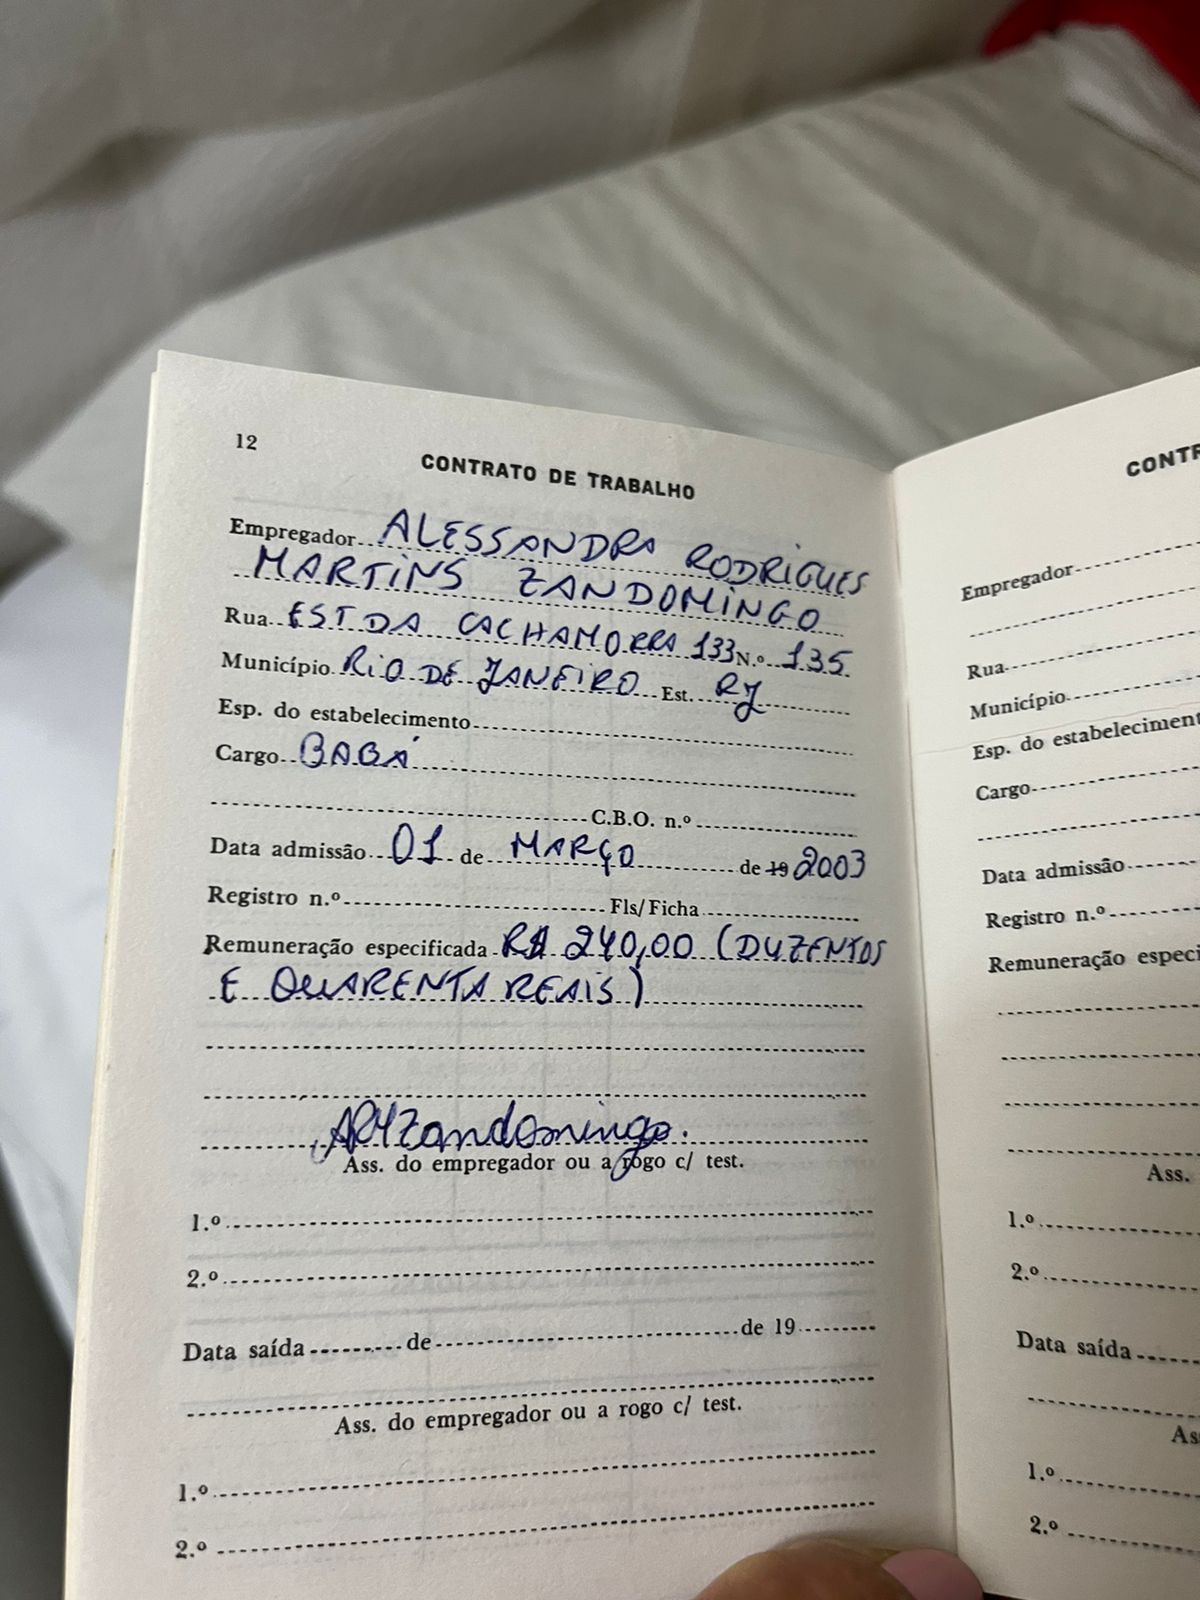 12
CONTRATO DE TRABALHO
Empregador ALESSANDRA RODRIGUES
MARTINS ZANDOMINGO
Rua EST DA CACHAMORRA 133 N.º 135
Município RIO DE JANEIRO Est. RJ
Esp. do estabelecimento
Cargo BABÁ
C.B.O. n.º
Data admissão 01 de MARÇO de 19 2003
Registro n.º Fls/Ficha
Remuneração especificada R$ 240,00 (DUZENTOS
E QUARENTA REAIS)
ARMZandomingo.
Ass. do empregador ou a rogo c/ test.
1.º
2.º
Data saída de de 19
Ass. do empregador ou a rogo c/ test.
1.º
2.º
CONTR
Empregador
Rua
Município
Esp. do estabeleciment
Cargo
Data admissão
Registro n.º
Remuneração especi
Ass.
1.º
2.º
Data saída
As
1.º
2.º